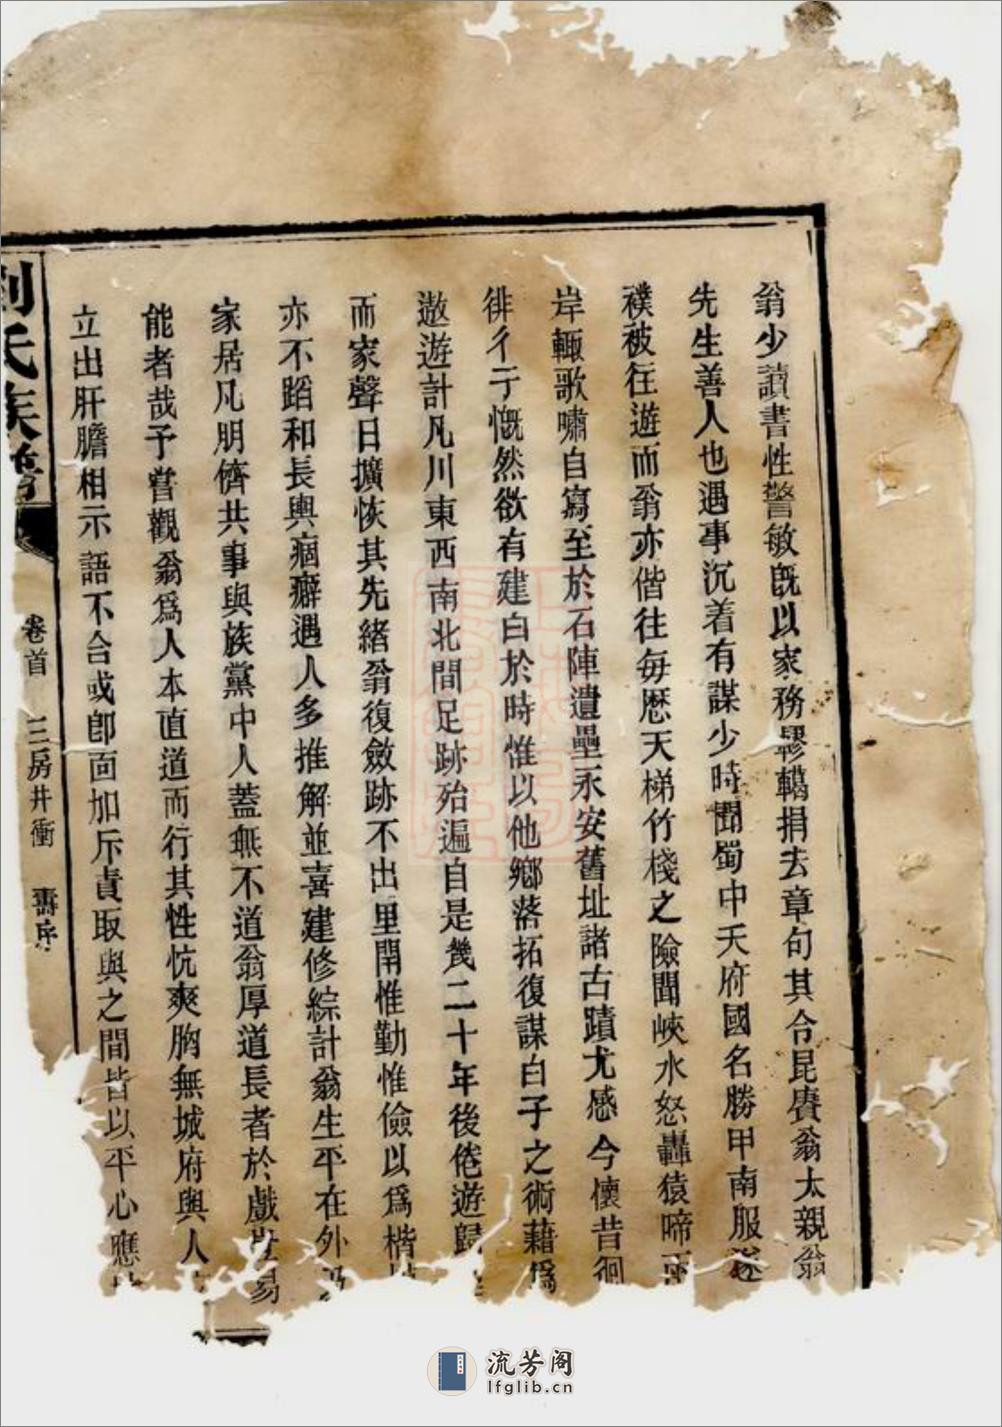 翁少讀書性警敏旣以家務轇轕捐去章句其令昆賡翁太親翁
先生善人也遇事沉着有謀少時聞蜀中天府國名勝甲南服遂
襆被往遊而翁亦偕往每厯天梯竹棧之險聞峽水怒轟猿啼
岸輙歌嘯自寫至於石陣遺壘永安舊址諸古蹟尤感今懷昔徊
徘彳亍慨然欲有建白於時惟以他鄉落拓復謀白子之術藉爲
遨遊計凡川東西南北間足跡殆遍自是幾二十年後倦遊歸
而家聲日擴恢其先緒翁復斂跡不出里閈惟勤惟儉以爲楷
亦不蹈和長輿痼癖遇人多推解並喜建修綜計翁生平在外
家居凡朋儕共事與族黨中人蓋無不道翁厚道長者於戲豈易
能者哉予嘗觀翁爲人本直道而行其性忼爽胸無城府與人
立出肝膽相示語不合或卽面加斥責取與之間皆以平心應
劉氏族譜
卷首 三房井衝 壽序
流芳阁
lfglib.cn